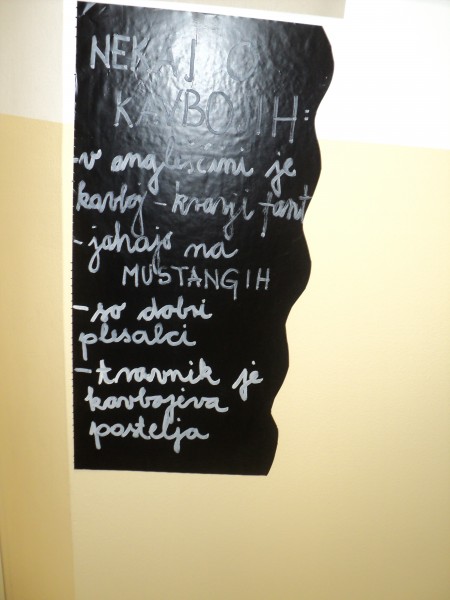 NEKAJ O
KAVBOJIH:
-v angleščini je
kavboj - kravji fant
-jahajo na
MUSTANGIH
-so dobri
plesalci
-travnik je
kavbojeva
postelja